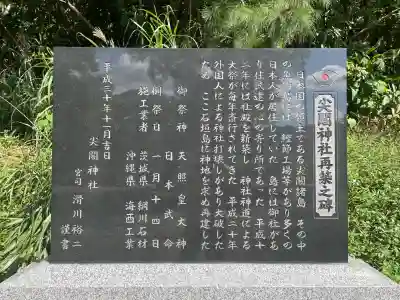 尖閣神社再築之碑
日本国の領土である尖閣諸島 その中
の魚釣島には 鰹節工場等があり多くの
日本人が居住していた 島には御社があ
り住民達の心の寄り所であった 平成十
二年には社殿を新築し 神社神道による
大祭が毎年斎行されてきた 平成二十年
外国人による神社打壊しがあり大破した
為 ここ石垣島に神地を求め再建した
御祭神 天照皇大神
日本武命
例祭日 一月十四日
施工業者 茨城県 綱川石材
沖縄県 海西工業
平成二十年十一月吉日
尖閣神社
宮司 滑川裕二
謹書